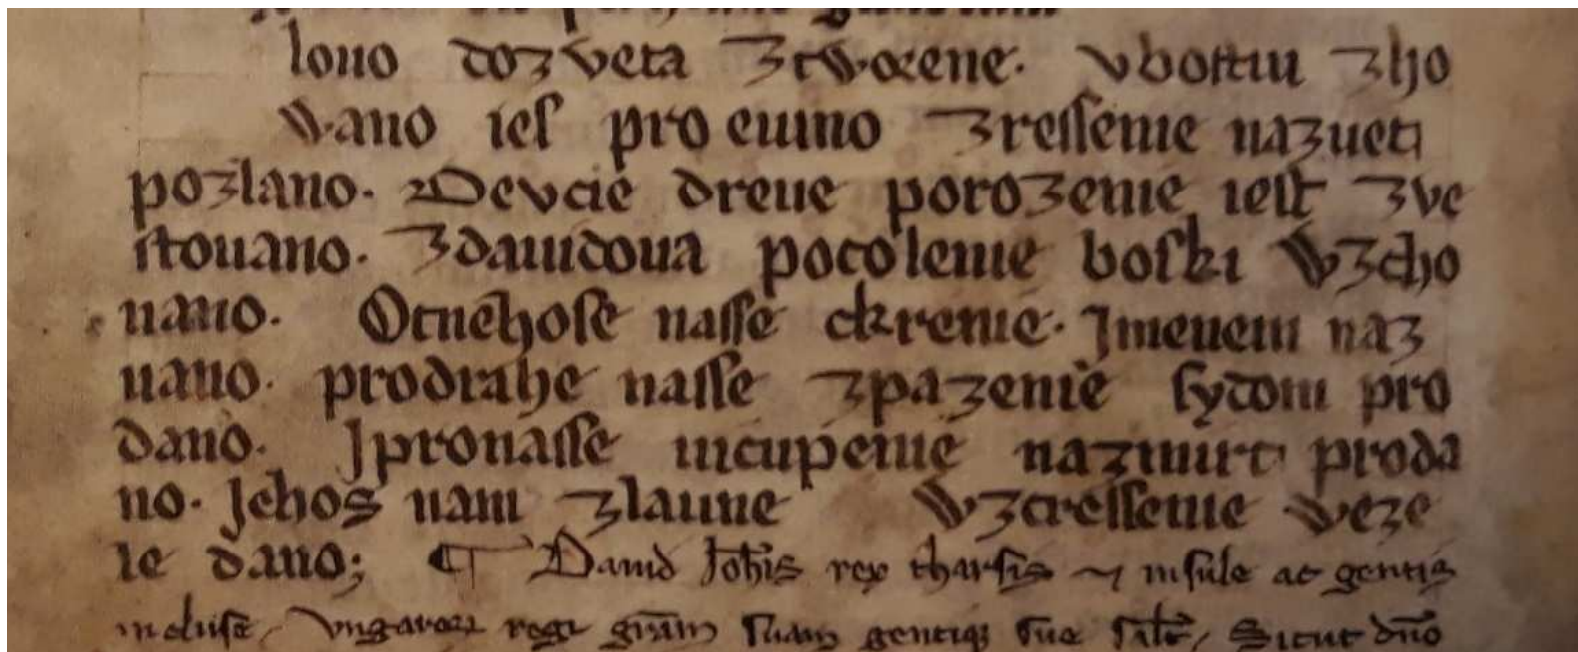 louo do ʒveta ʒtworene. vboſtiu ʒho
wano ieſ pro euino ʒreſſenie naʒueti
poʒlano. Devcie dreue poroʒenie ieſt ʒve
ſtouano. ʒdauidoua pocolenie boſki wʒcho
uano. Otnēhoſe naſſe ckrenie. Jmenem naʒ
uano. prodrahe naſſe ʒpaʒenie ſydom pro
dano. Jpronaſſe uicupenie naʒmirt proda
no. Jehos nam ʒlaune wʒcreſſenie veʒe
le dano; ¶ Dauid Joh̄is rex tharſis ⁊ inſule ac gentis
incluſe, vngaroꝝ regi grām ſuam gentiqꝫ ſue Sicut dn̄o